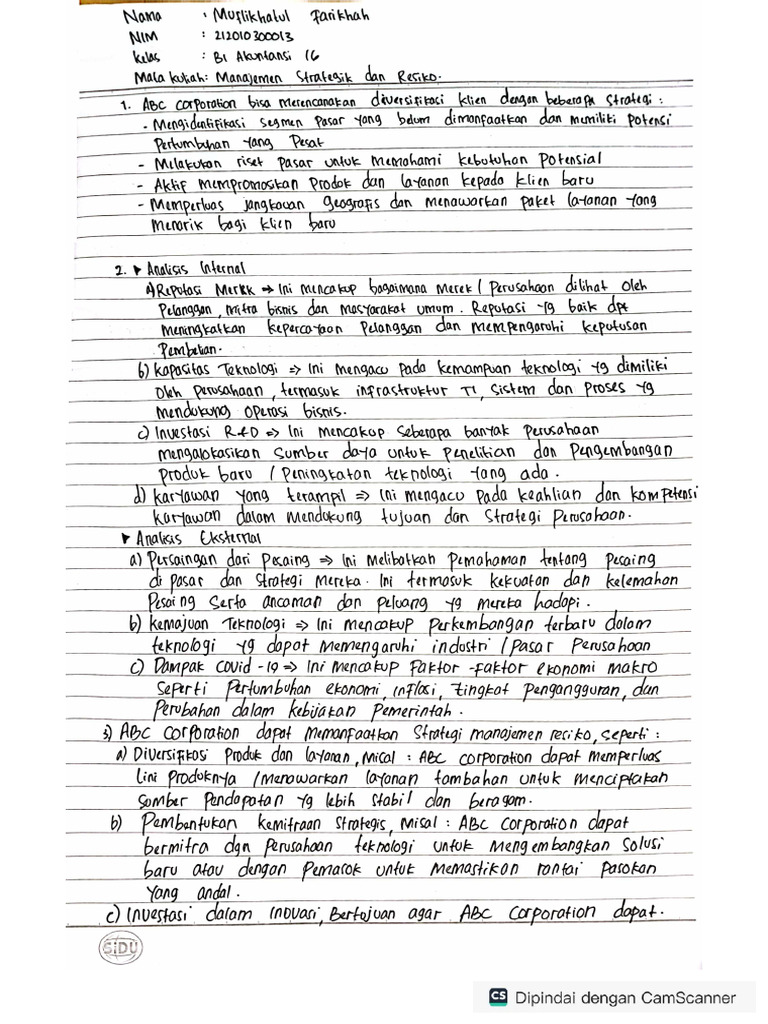 Nama : Muflikhatul Farikhah
NIM : 212010300013
Kelas : B1 Akuntansi 16
Mata kuliah: Manajemen Strategik dan Resiko.
1. ABC corporation bisa merencanakan diversifikasi klien dengan beberapa strategi :
- Mengidentifikasi segmen pasar yang belum dimanfaatkan dan memiliki potensi
Pertumbuhan yang Pesat
- Melakukan riset pasar untuk memahami kebutuhan potensial
- Aktif mempromosikan produk dan layanan kepada klien baru
- Memperluas jangkauan geografis dan menawarkan paket layanan yang
menarik bagi klien baru
2. ▶ Analisis Internal
a) Reputasi Merk => Ini mencakup bagaimana merek / perusahaan dilihat oleh
Pelanggan, mitra bisnis dan masyarakat umum. Reputasi yg baik dpt
meningkatkan kepercayaan Pelanggan dan mempengaruhi keputusan
Pembelian.
b) Kapasitas Teknologi => Ini mengacu pada kemampuan teknologi yg dimiliki
oleh perusahaan, termasuk infrastruktur TI, sistem dan proses yg
mendukung operasi bisnis.
c) Investasi R&D => Ini mencakup seberapa banyak Perusahaan
mengalokasikan sumber daya untuk penelitian dan Pengembangan
produk baru / Peningkatan teknologi yang ada.
d) Karyawan yang terampil => Ini mengacu pada keahlian dan kompetensi
karyawan dalam mendukung tujuan dan strategi perusahaan.
▶ Analisis Eksternal
a) Persaingan dari Pesaing => Ini Melibatkan Pemahaman tentang Pesaing
di pasar dan strategi mereka. Ini termasuk kekuatan dan kelemahan
Pesaing serta ancaman dan peluang yg mereka hadapi.
b) Kemajuan Teknologi => Ini mencakup Perkembangan terbaru dalam
teknologi yg dapat memengaruhi industri / pasar Perusahaan
c) Dampak Covid-19 => Ini mencakup Faktor-faktor ekonomi makro
seperti Pertumbuhan ekonomi, inflasi, tingkat pengangguran, dan
Perubahan dalam kebijakan Pemerintah.
3) ABC corporation dapat memanfaatkan strategi manajemen resiko, seperti :
a) Diversifikasi Produk dan layanan, Misal : ABC corporation dapat memperluas
lini produknya / menawarkan layanan tambahan untuk menciptakan
sumber pendapatan yg lebih stabil dan beragam.
b) Pembentukan kemitraan strategis, Misal : ABC corporation dapat
bermitra dgn perusahaan teknologi untuk mengembangkan solusi
baru atau dengan pemasok untuk memastikan rantai pasokan
yang andal.
c) Investasi dalam Inovasi, Bertujuan agar ABC corporation dapat.
SiDU
CS Dipindai dengan CamScanner